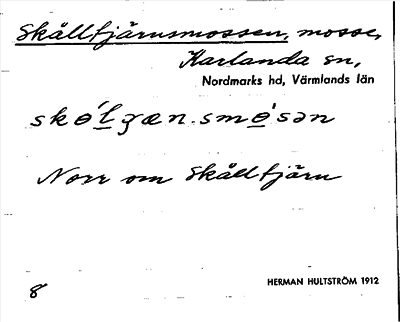 Skålltjärnsmossen, mosse,
Karlanda sn,
Nordmarks hd, Värmlands län
skǿlʒæn.smǿsən
Norr om Skålltjärn
HERMAN HULTSTRÖM 1912
8